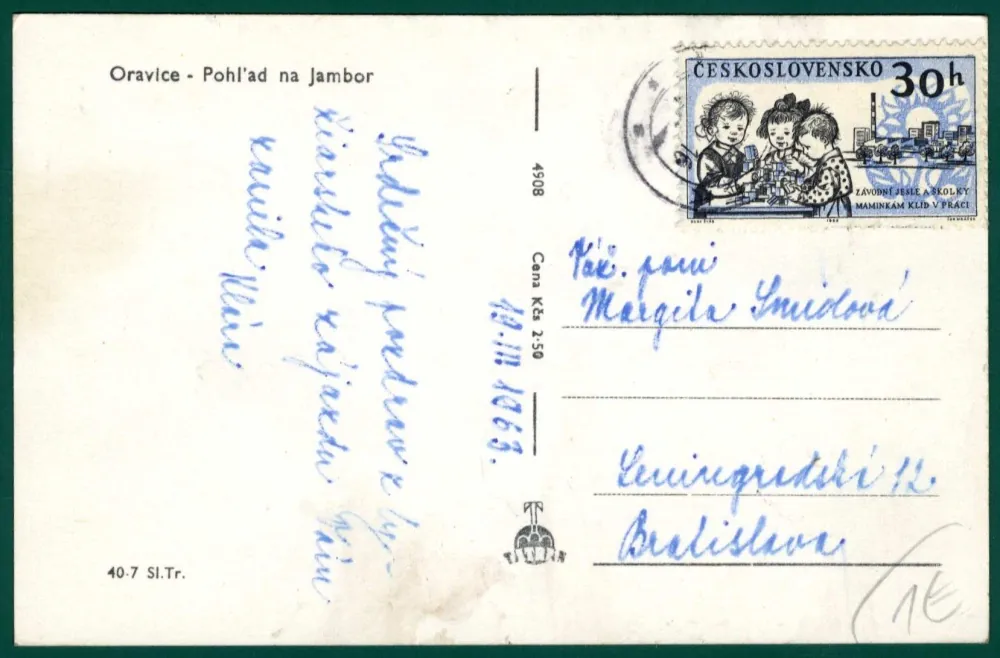 Oravice - Pohľad na Jambor
Srdečný pozdrav z ly-
žiarskeho zájazdu Vám
zasiela Klára
19.III 1963.
4908
Cena Kčs 2·50
TATRAN
40-7 Sl.Tr.
ČESKOSLOVENSKO 30h
ZÁVODNÍ JESLE A ŠKOLKY
MAMINKÁM KLID V PRÁCI
Váž. pani
Margita Smidová
Leningradská 12
Bratislava
1€